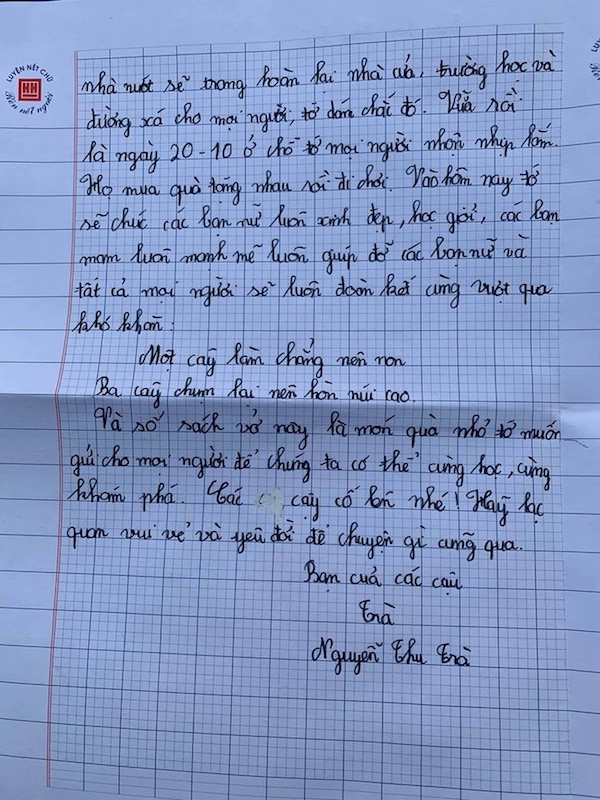 LUYỆN NÉT CHỮ
HH
Rèn nết người
nhà nước sẽ trong hoàn lại nhà cửa, trường học và
đường xá cho mọi người, tớ dám chắc đó. Vừa rồi
là ngày 20-10 ở chỗ tớ mọi người nhộn nhịp lắm.
Họ mua quà tặng nhau rồi đi chơi. Vào hôm nay tớ
sẽ chúc các bạn nữ luôn xinh đẹp, học giỏi, các bạn
nam luôn mạnh mẽ luôn giúp đỡ các bạn nữ và
tất cả mọi người sẽ luôn đoàn kết cùng vượt qua
khó khăn:
Một cây làm chẳng nên non
Ba cây chụm lại nên hòn núi cao.
Và số sách vở này là món quà nhỏ tớ muốn
gửi cho mọi người để chúng ta có thể cùng học, cùng
khám phá. Các cậy cố lên nhé! Hãy lạc
quan vui vẻ và yêu đời để chuyện gì cũng qua.
Bạn của các cậu
Trà
Nguyễn Thu Trà